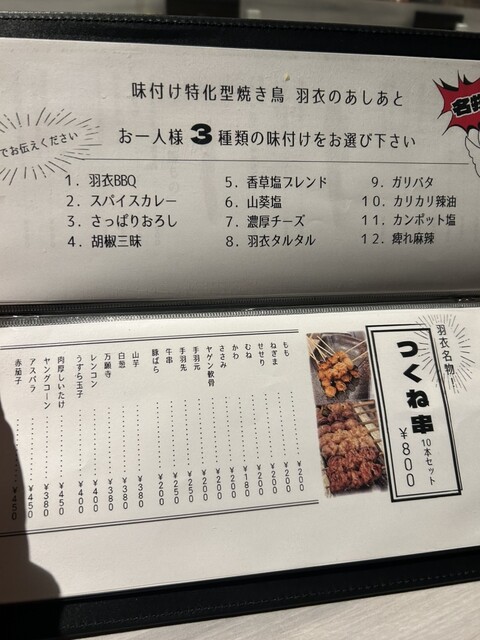 味付け特化型焼き鳥 羽衣のあしあと
でお伝えください
お一人様 3 種類の味付けをお選び下さい
1. 羽衣BBQ
2. スパイスカレー
3. さっぱりおろし
4. 胡椒三昧
5. 香草塩ブレンド
6. 山葵塩
7. 濃厚チーズ
8. 羽衣タルタル
9. ガリバタ
10. カリカリ辣油
11. カンポット塩
12. 痺れ麻辣
羽衣名物!
つくね串
10本セット
¥800
もも ¥200
ねぎま ¥200
せせり ¥200
むね ¥200
かわ ¥180
ささみ ¥200
ヤゲン軟骨 ¥200
手羽元 ¥200
手羽先 ¥250
牛串 ¥250
豚ばら ¥200
山芋 ¥380
白葱 ¥380
万願寺 ¥380
レンコン ¥400
うずら玉子 ¥400
肉厚しいたけ ¥450
ヤングコーン ¥380
アスパラ ¥450
赤茄子 ¥450